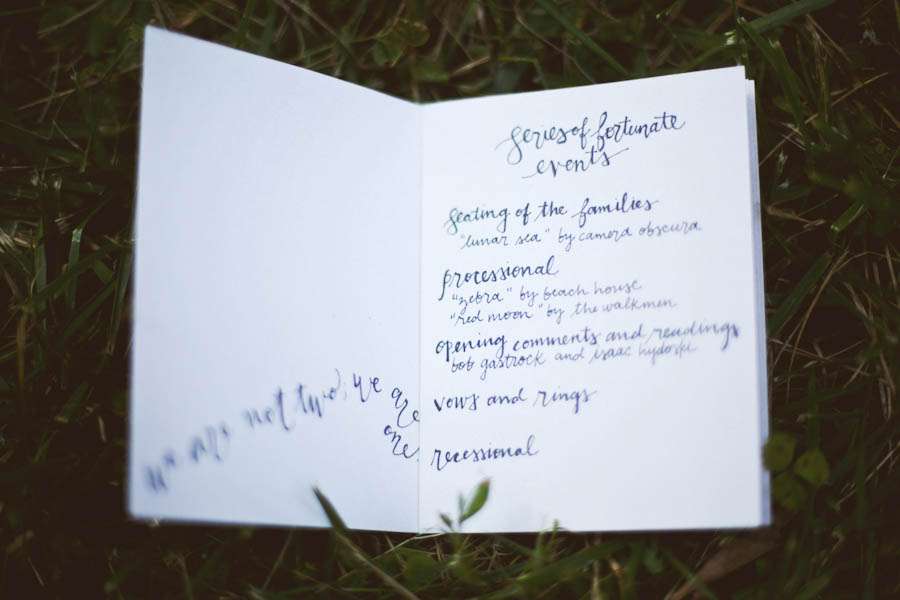 we are not two; we are one.
series of fortunate
events
seating of the families
"lunar sea" by camera obscura
processional
"zebra" by beach house
"red moon" by the walkmen
opening comments and readings
bob gastrock and isaac hydoski
vows and rings
recessional